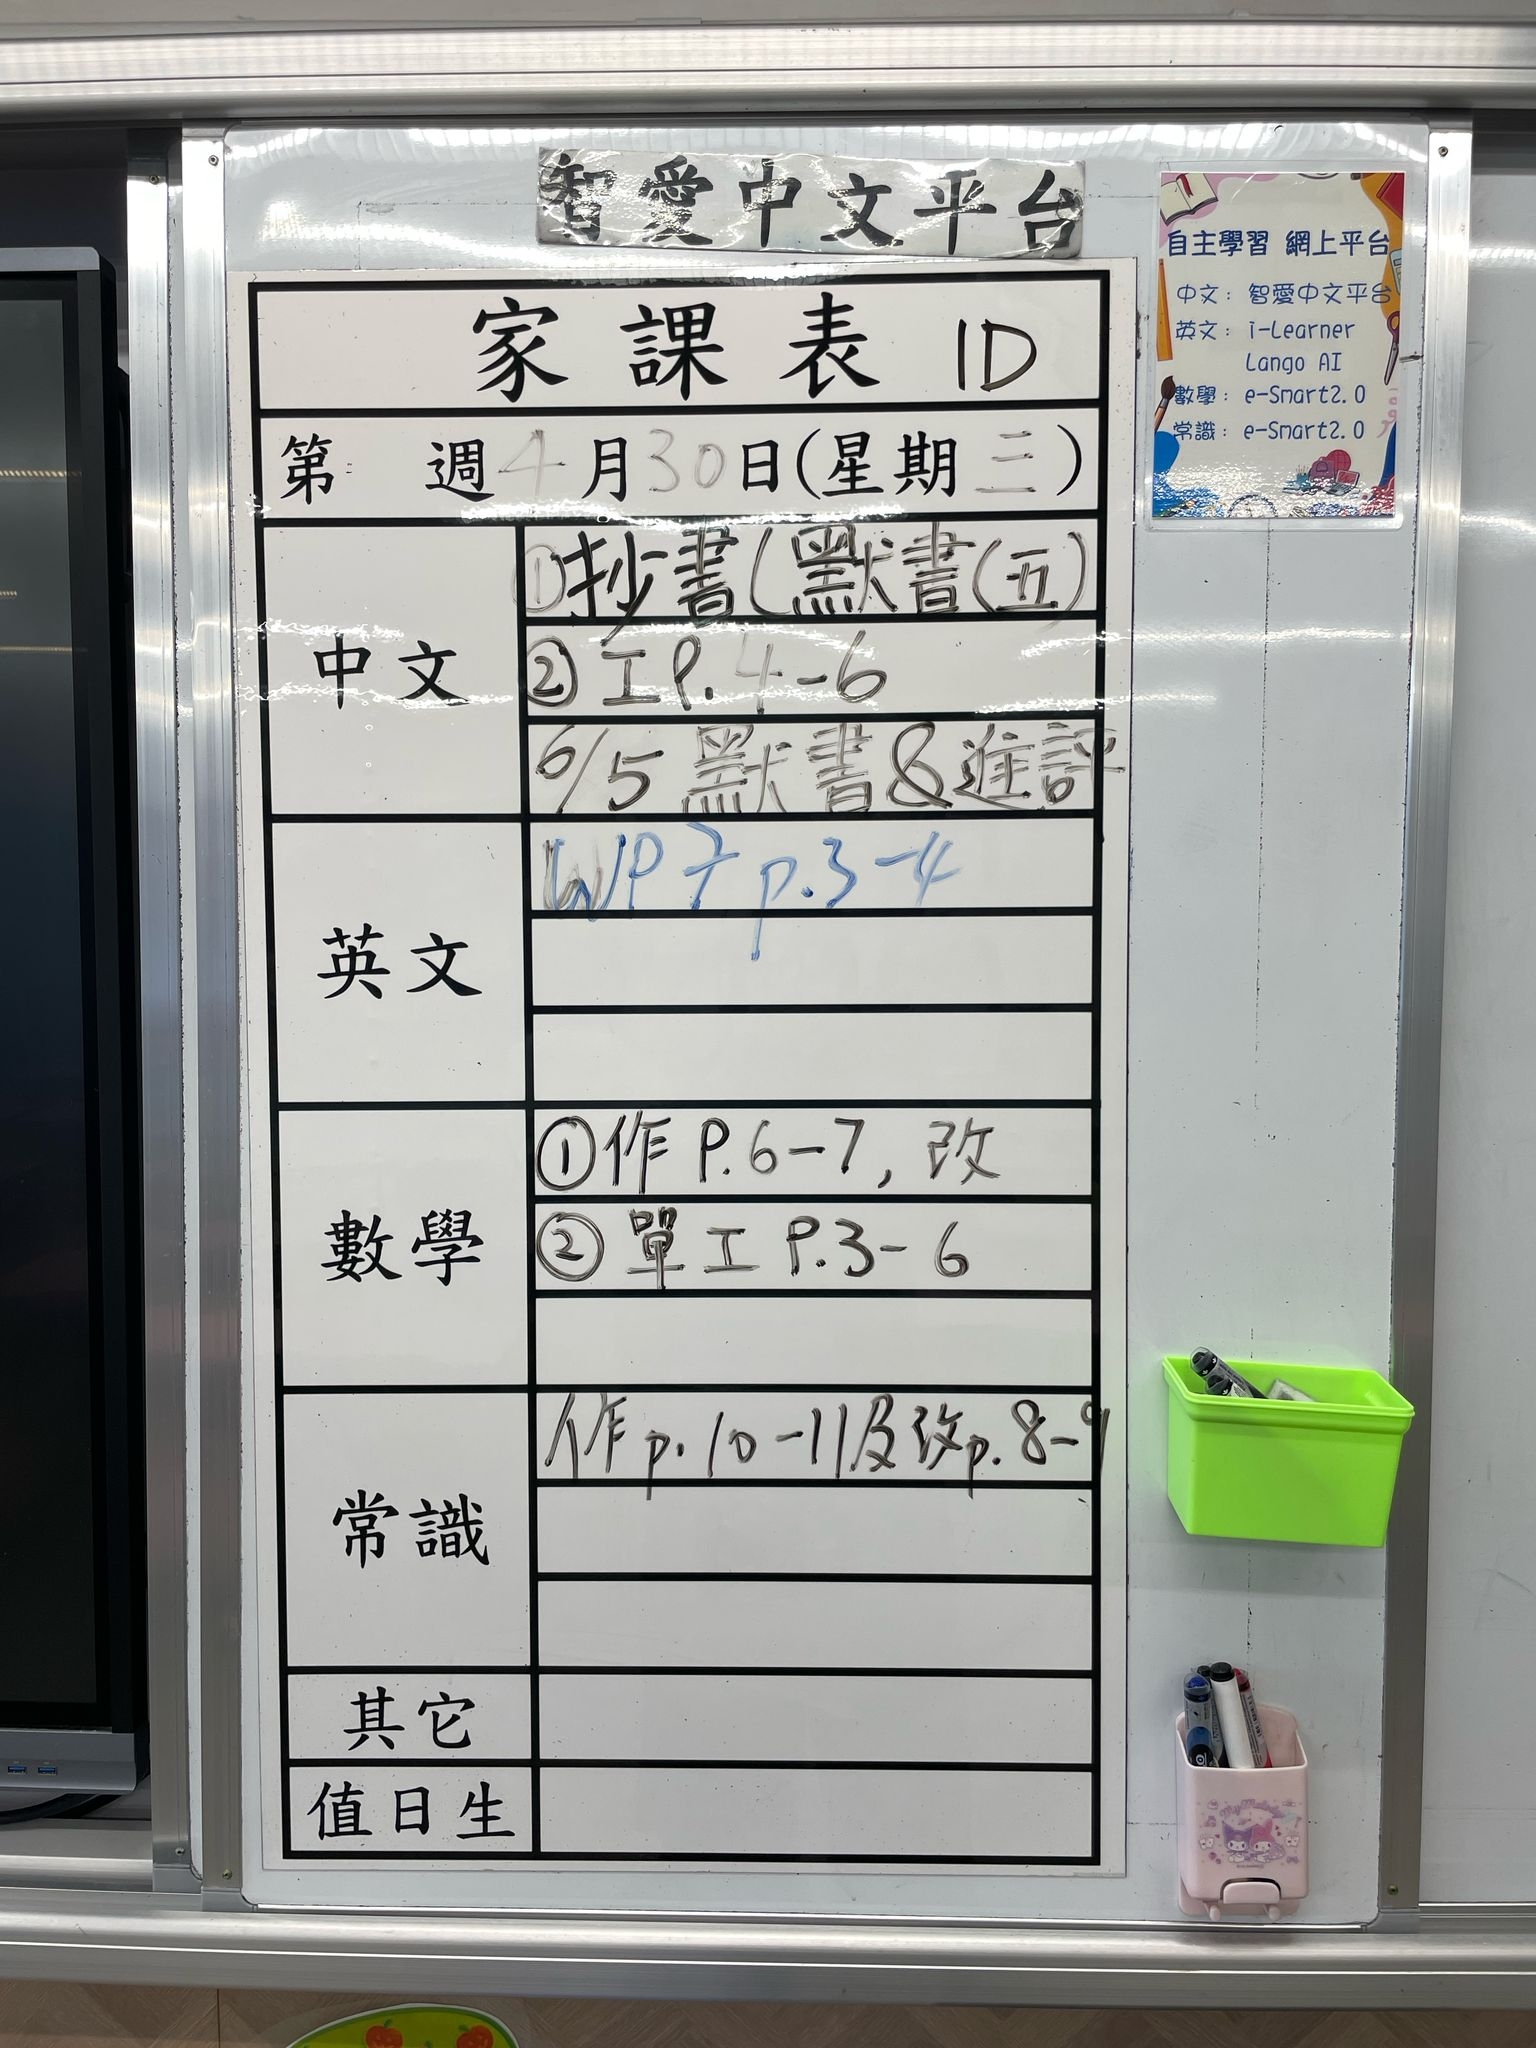 智愛中文平台
自主學習 網上平台
中文: 智愛中文平台
英文: i-Learner
Lango AI
數學: e-Smart2.0
常識: e-Smart2.0
家課表 1D
第 週 4月30日(星期三)
中文
①抄書(默書(五)
②工P.4-6
6/5 默書&進評
英文
WP 7 p.3-4
數學
①作 P.6-7, 改
②單工 P.3-6
常識
作p.10-11及改p.8-9
其它
值日生